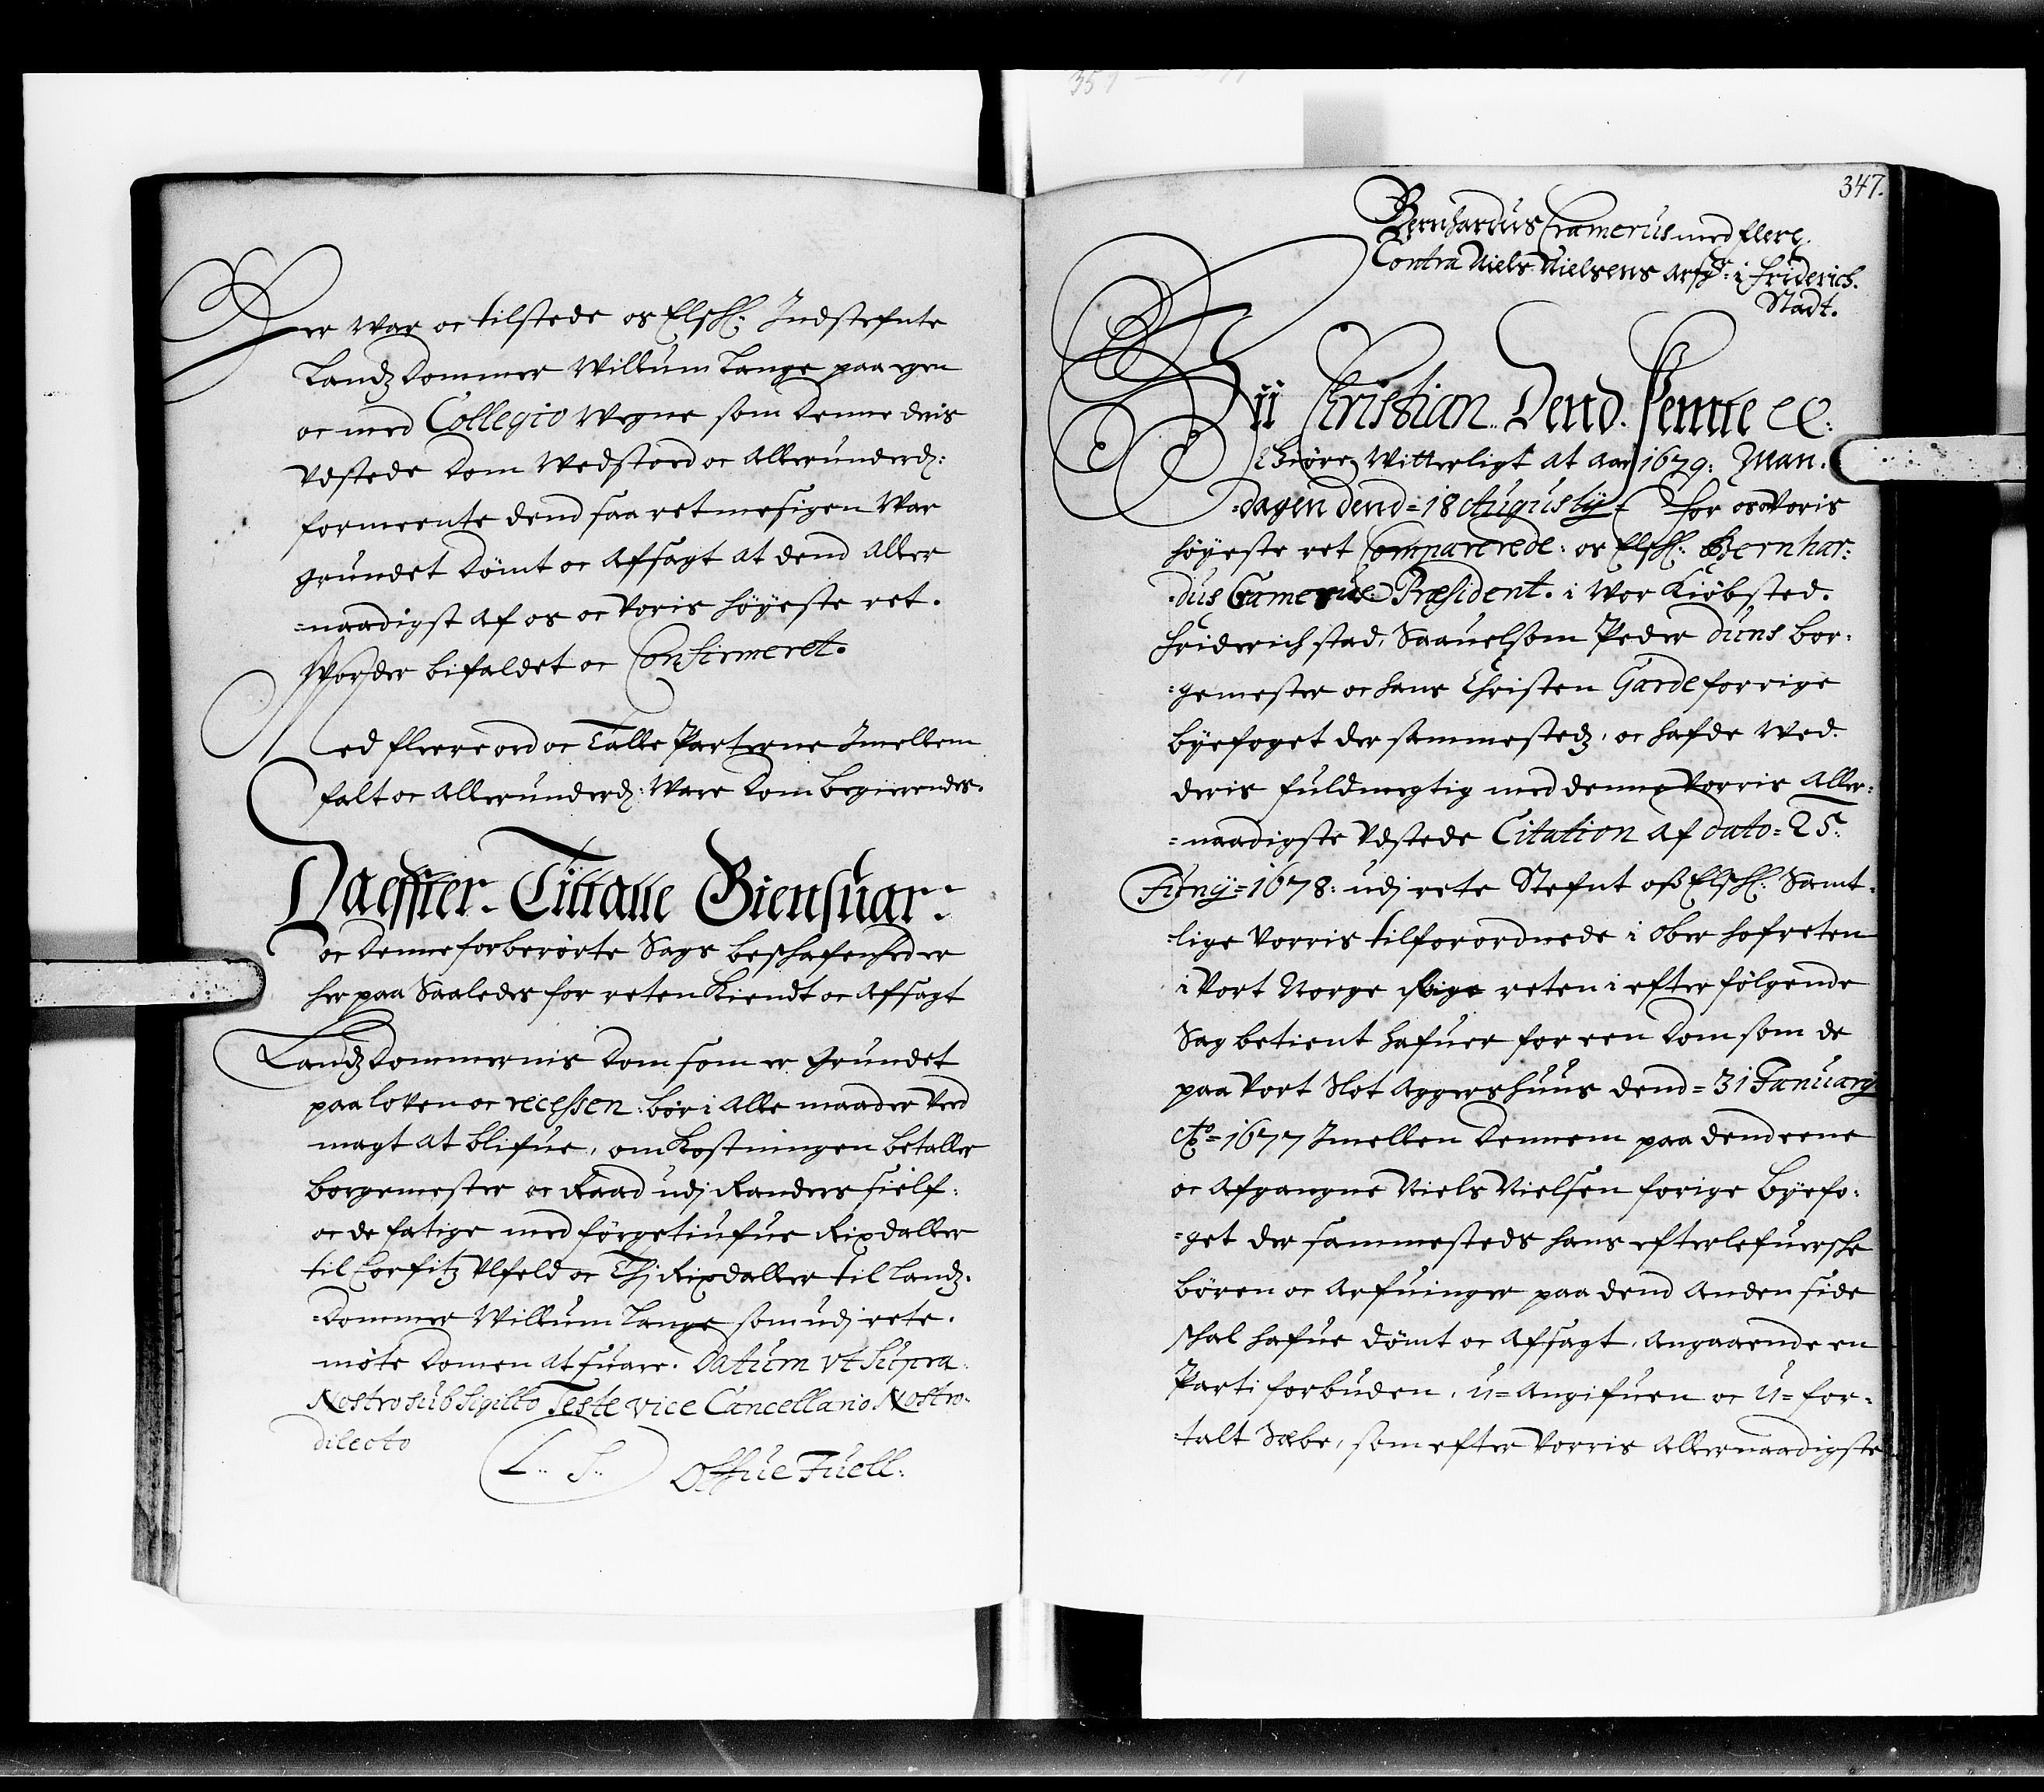 Her War oc tilstede os Elschl: Indstefnte
Landzdommer Willum Lange paa egen
oc med Collegio Wegne som denne dris
Vdstede dom Wedstoed oc Allerunderd:
formeente dend saa retmesigen War
grundet dömt oc Afsagt at dend Aller
=naadigst af os oc Voris höÿeste ret.
Worder bifaldet oc Confirmeret.
Med fleere ord oc Talle Parterne Imellem
falt oc Allerunderd: Ware dom begierendes.
Da effter Tilltalle Giensuar:
oc denne forberörte Sags beschafenhed er
her paa Saaledes for reten Kiendt oc Afsagt
Landzdommernis dom som er grundet
paa loven oc recessen: bör i Alle maader Ved
magt at blifue, omkostningen betaller
borgemester oc Raad udj Randers sielf:
oc de fatige med förgetiufue Rixdaller
til Corfitz Ulfeld oc Thj Rixdaller til Landz.
=dommer Willum Lange som udj rete.
möte domen at suare. Datum Vt Supra
Nostro sub Sigillo Teste Vice Cancellario Nostro.
dilecto
L.. S.. Offue Juell:
347.
Bernhardus Cramerus med flere.
Contra Niels Nielsens Arfg: i Friderich.
Stadt.
Vii Christian Dend. Femte etc:
Giöre Witterligt at Aar 1679: Man.
=dagen dend=18 Augustÿ= For os oc Voris
höÿeste ret Comparerede: os Elschl: Bernhar:
=dus Cramerus Præsident. i Wor Kiöbsted.
Friderichstad, Saauelsom Peder Duns bor:
=gemester oc Hans Christen Garde forrige
bÿefoget der sammestedz, oc hafde Wed.
deris fuldmegtig med denne Vorris Aller:
=naadigste Vdstede Citation af dato=25.
Junÿ=1678: udj rete Stefnt oss Elschl: Samt=
=lige Vorris tilforordnede i Ober hofreten
i Vort Norge Rige reten i efterfölgende
Sag betient hafuer for een dom som de
paa Vort Slot Aggershuus dend=31 Januarÿ
Ao=1677 Imellem dennem paa dend eene
oc Afgangne Niels Nielsen forige bÿefo:
=get der sammesteds hans efterlefuersche
bören oc Arfuinger paa dend Anden side
schal hafue dömt oc Afsagt, Angaaende en
Parti forbuden, U=Angifuen oc U=for=
=talt Sæbe, som efter Vorris Allernaadigste